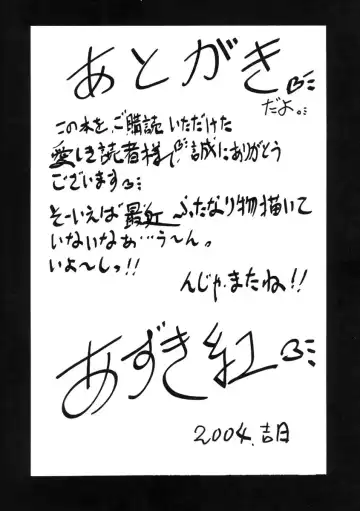 あとがき
だよ。
この本を、ご購読いただけた
愛しき読者様 誠にありがとう
ございます
そーいえば最近ふたなり物描いて
いないなぁ…う〜ん。
いよ〜しっ!!
んじゃまたね!!
あずき紅
2004.吉日